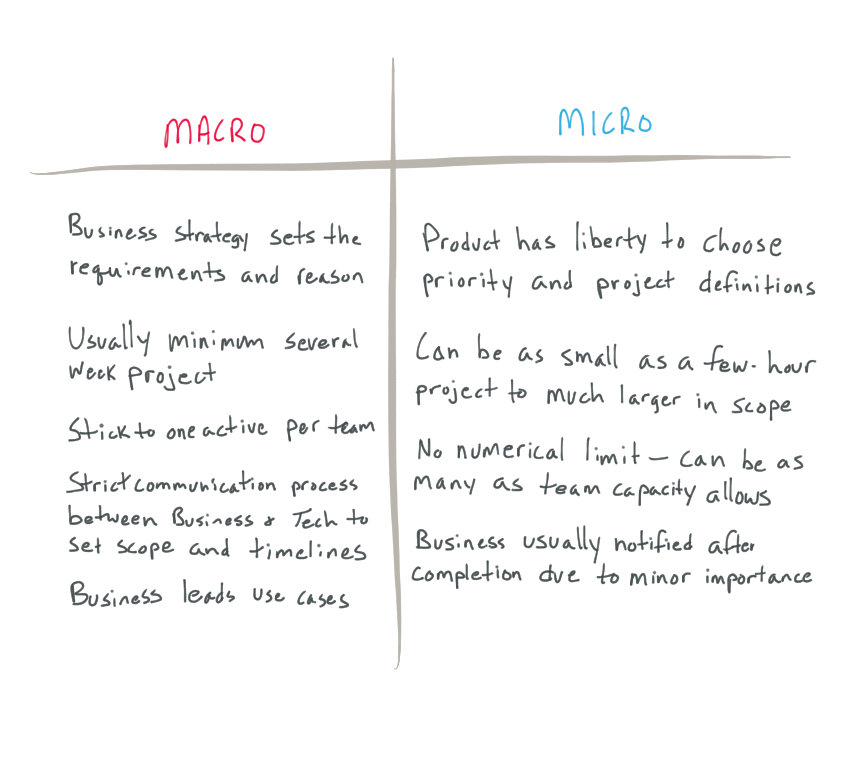 MACRO
MICRO
Business strategy sets the
requirements and reason
Usually minimum several
week project
Stick to one active per team
Strict communication process
between Business & Tech to
set scope and timelines
Business leads use cases
Product has liberty to choose
priority and project definitions
Can be as small as a few-hour
project to much larger in scope
No numerical limit – can be as
many as team capacity allows
Business usually notified after
completion due to minor importance